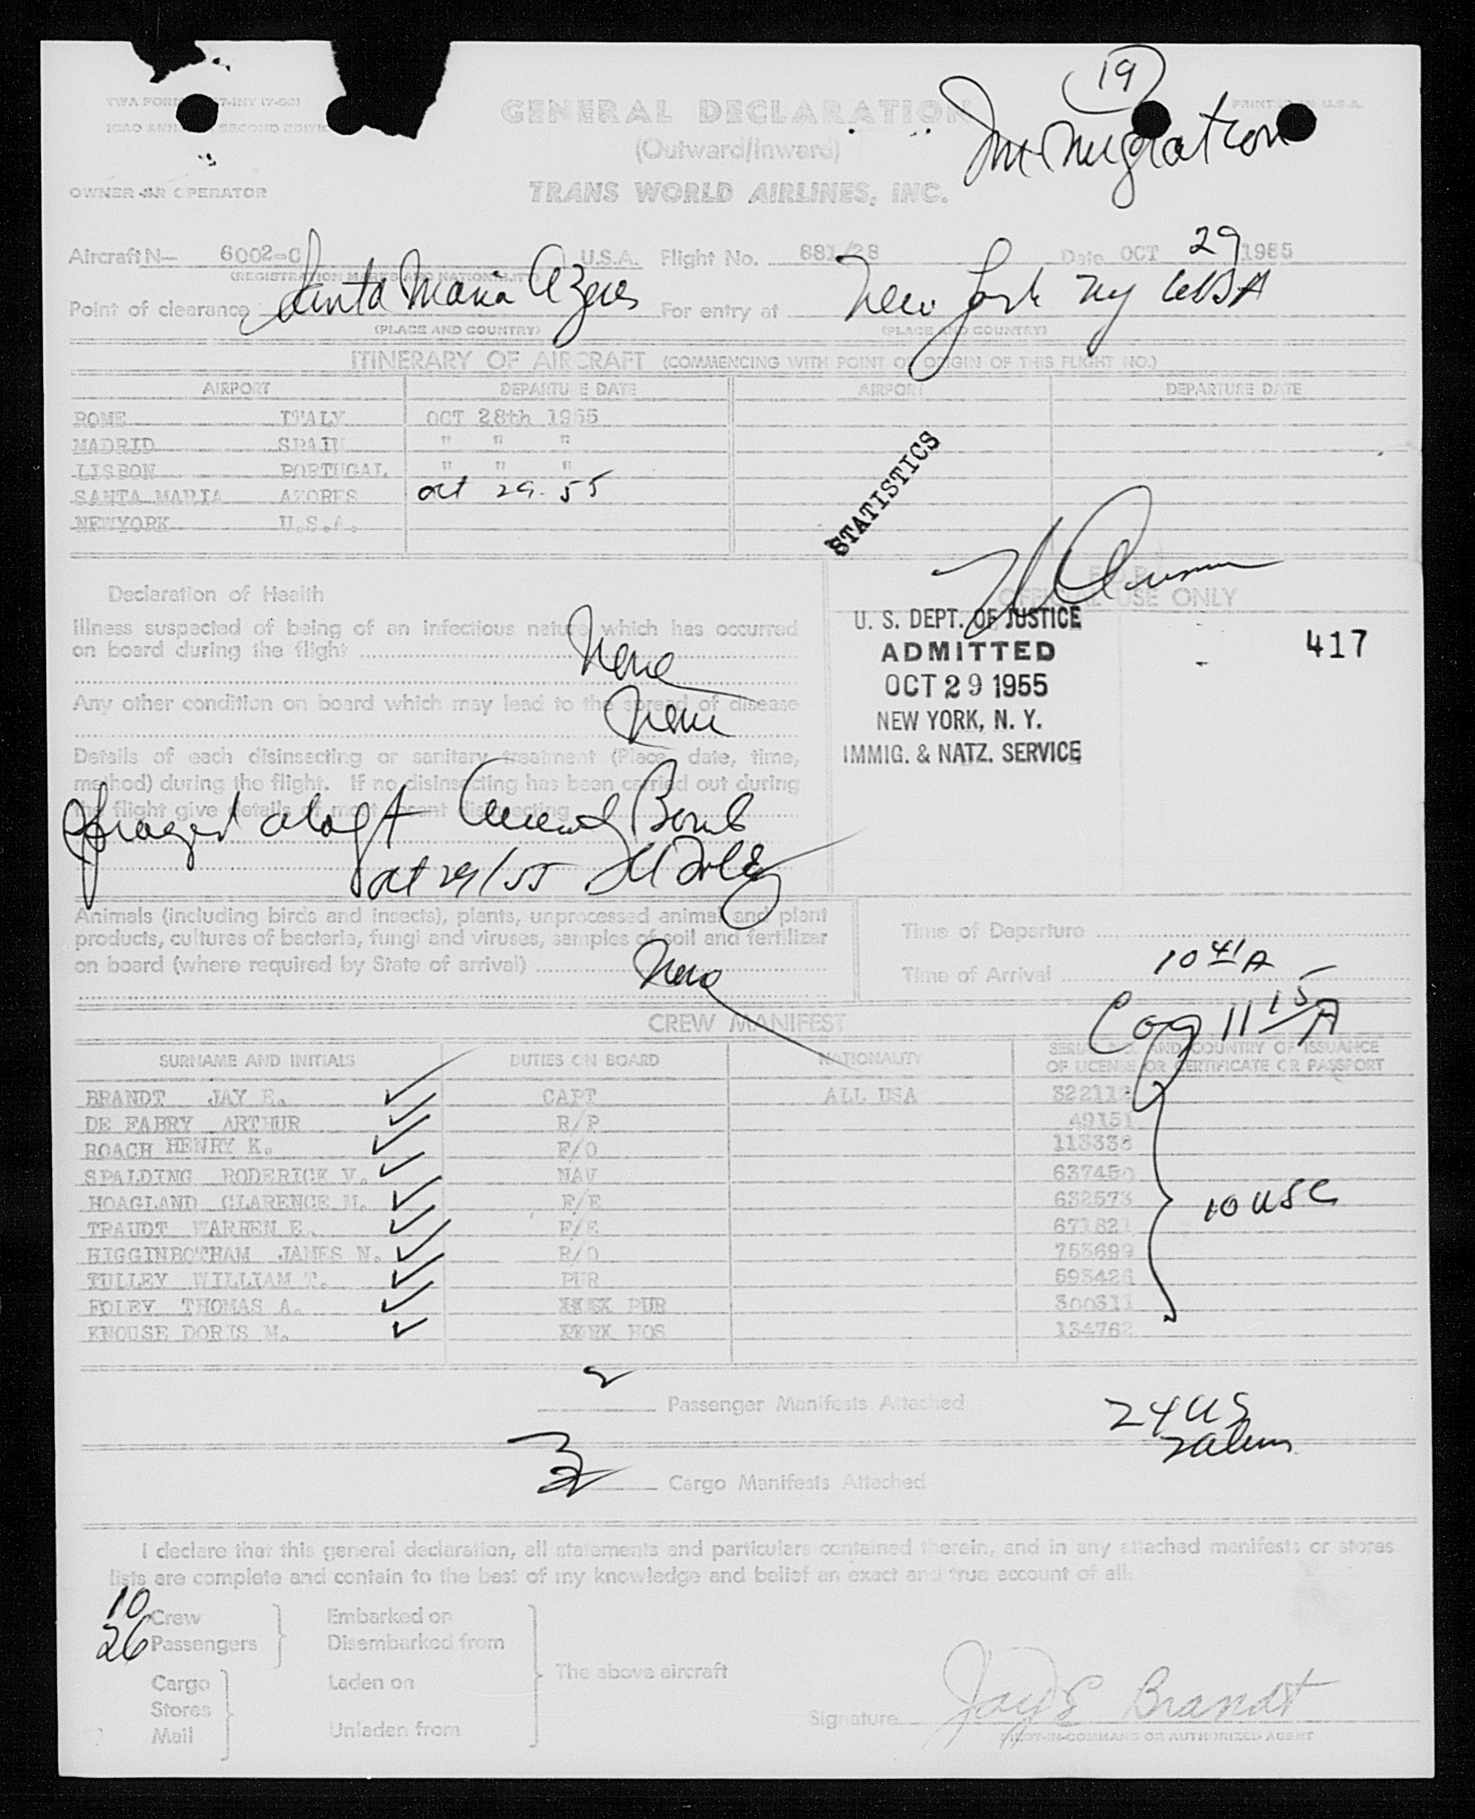 19
Immigration
GENERAL DECLARATION
PRINTED IN U.S.A.
(Outward/Inward)
OWNER OR OPERATOR
TRANS WORLD AIRLINES, INC.
Aircraft N- 6002-C U.S.A. Flight No. 881/28 Date OCT 29 1955
(REGISTRATION MARKS AND NATIONALITY)
Point of clearance Santa Maria Azores For entry at New York NY USA
(PLACE AND COUNTRY) (PLACE AND COUNTRY)
ITINERARY OF AIRCRAFT (COMMENCING WITH POINT OF ORIGIN OF THIS FLIGHT NO.)
AIRPORT DEPARTURE DATE AIRPORT DEPARTURE DATE
ROME ITALY OCT 28th 1955
MADRID SPAIN " " "
LISBON PORTUGAL " " "
SANTA MARIA AZORES Oct 29-55
NEWYORK U.S.A.
STATISTICS
Declaration of Health
OFFICIAL USE ONLY
Illness suspected of being of an infectious nature which has occurred
on board during the flight None
Any other condition on board which may lead to the spread of disease
None
Details of each disinsecting or sanitary treatment (Place, date, time,
method) during the flight. If no disinsecting has been carried out during
the flight give details of most recent disinsecting
aloft Bomb
Oct 29/55
U. S. DEPT. OF JUSTICE
ADMITTED
OCT 29 1955
NEW YORK, N. Y.
IMMIG. & NATZ. SERVICE
417
Animals (including birds and insects), plants, unprocessed animal and plant
products, cultures of bacteria, fungi and viruses, samples of soil and fertilizer
on board (where required by State of arrival) None
Time of Departure
Time of Arrival 10 41 A
11 15 A
CREW MANIFEST
SURNAME AND INITIALS DUTIES ON BOARD NATIONALITY SERIAL NO. AND COUNTRY OF ISSUANCE
OF LICENSE OR CERTIFICATE OR PASSPORT
BRANDT JAY E. CAPT ALL USA
DE FABRY ARTHUR R/P 49151
ROACH HENRY K. F/O
SPALDING RODERICK V. NAV
HOAGLAND CLARENCE M. F/E 632573
TRAUDT WARREN E. F/E
HIGGINBOTHAM JAMES N. R/O 753699
TULLEY WILLIAM T. PUR
FOLEY THOMAS A. PUR
KNOUSE DORIS M. HOS
10 USC
2 Passenger Manifests Attached
24 US
2 aliens
Cargo Manifests Attached
I declare that this general declaration, all statements and particulars contained therein, and in any attached manifests or stores
lists are complete and contain to the best of my knowledge and belief an exact and true account of all:
10 Crew Embarked on
26 Passengers Disembarked from
The above aircraft
Cargo Laden on
Stores
Mail Unladen from
Signature Jay E Brandt
PILOT-IN-COMMAND OR AUTHORIZED AGENT